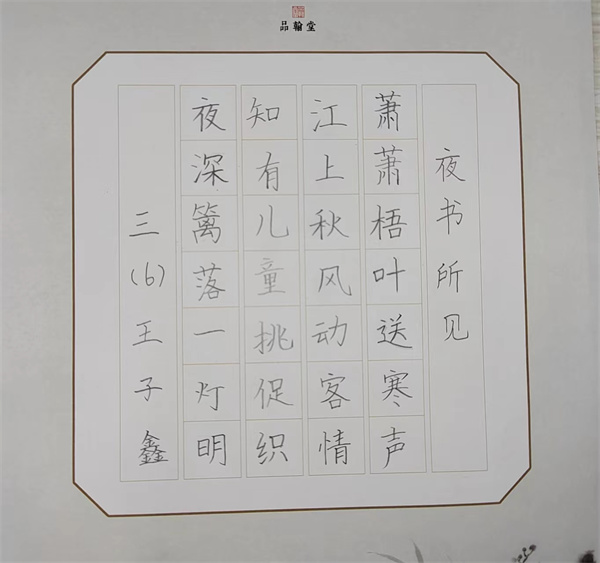 品翰堂
夜书所见
萧萧梧叶送寒声
江上秋风动客情
知有儿童挑促织
夜深篱落一灯明
三(6)王子鑫